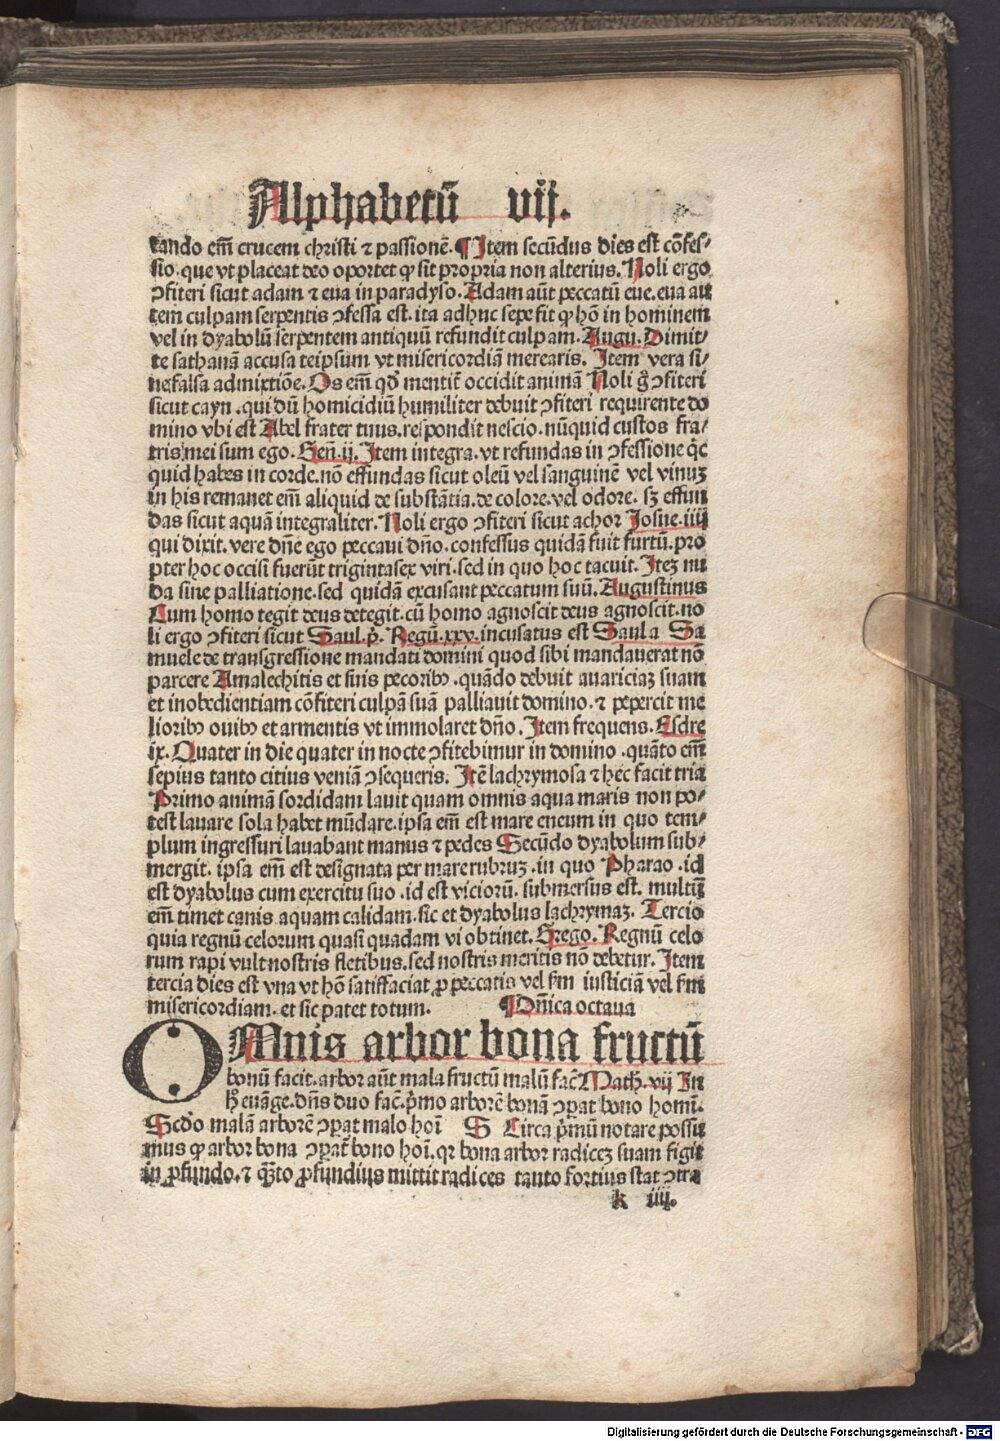 Alphabetū vij.
tando em̄ crucem christi ⁊ passionē. ¶ Item secūdus dies est cōfes⸗
sio. que vt placeat deo oportet ꝙ sit propria non alterius. Noli ergo
ꝯfiteri sicut adam ⁊ eua in paradyso. Adam aūt peccatū eue. eua au
tem culpam serpentis ꝯfessa est. ita adhuc sepe fit ꝙ hō in hominem
vel in dyabolū serpentem antiquū refundit culpam. Augu. Dimit⸗
te sathanā accusa teipsum vt misericordiā merearis. Item vera si⸗
ne falsa admixtiōe. Os em̄ qd̄ mentit̄ occidit animā Noli g̊ ꝯfiteri
sicut cayn. qui dū homicidiū humiliter debuit ꝯfiteri requirente do
mino vbi est Abel frater tuus. respondit nescio. nūquid custos fra⸗
tris mei sum ego. Gen̄. ij. Item integra. vt refundas in ꝯfessione qc̄
quid habes in corde. nō effundas sicut oleū vel sanguinē vel vinuꝫ
in his remanet em̄ aliquid de substātia. de colore. vel odore. sꝫ effun
das sicut aquā integraliter. Noli ergo ꝯfiteri sicut achor Josue. iiij
qui dixit. vere dn̄e ego peccaui dn̄o. confessus quidā fuit furtū. pro
pter hoc occisi fuerūt trigintasex viri. sed in quo hoc tacuit. Iteꝫ nu
da sine palliatione. sed quidā excusant peccatum suū. Augustinus
Cum homo tegit deus detegit. cū homo agnoscit deus agnoscit. no
li ergo ꝯfiteri sicut Saul. p̄. Regū. xxv. incusatus est Saul a Sa
muele de transgressione mandati domini quod sibi mandauerat nō
parcere Amalechitis et suis pecoribꝰ. quādo debuit auariciaꝫ suam
et inobedientiam cōfiteri culpā suā palliauit domino. ⁊ pepercit me
lioribꝰ ouibꝰ et armentis vt immolaret dn̄o. Item frequens. Esdre
ix. Quater in die quater in nocte ꝯfitebimur in domino. quāto em̄
sepius tanto citius veniā ꝯsequeris. Itē lachrymosa ⁊ hec facit tria
Primo animā sordidam lauit quam omnis aqua maris non po⸗
test lauare sola habet mūdare. ipsa em̄ est mare eneum in quo tem⸗
plum ingressuri lauabant manus ⁊ pedes Secūdo dyabolum sub⸗
mergit. ipsa em̄ est designata per mare rubruꝫ. in quo Pharao. id
est dyabolus cum exercitu suo. id est viciorū. submersus est. multū
em̄ timet canis aquam calidam. sic et dyabolus lachrymaꝫ. Tercio
quia regnū celorum quasi quadam vi obtinet. Grego. Regnū celo
rum rapi vult nostris fletibus. sed nostris meritis nō debetur. Item
tercia dies est vna vt hō satiffaciat ꝓ peccatis vel ẜm iusticiā vel ẜm
misericordiam. et sic patet totum. ¶ Dn̄ica octaua
OMnis arbor bona fructū
bonū facit. arbor aūt mala fructū malū fac̄ Math. vij In
h̄ euāge. dn̄s duo fac̄. p̄mo arborē bonā ꝯꝑat bono homi.
Scd̄o malā arborē ꝯꝑat malo hoi S Circa p̄mū notare possu
mus ꝙ arbor bona ꝯꝑat̄ bono hoi. qꝛ bona arbor radiceꝫ suam figit
in ꝓfundo. ⁊ q̄to ꝓfundius mittit radices tanto fortius stat ꝯtra
k iiij.
Digitalisierung gefördert durch die Deutsche Forschungsgemeinschaft - DFG